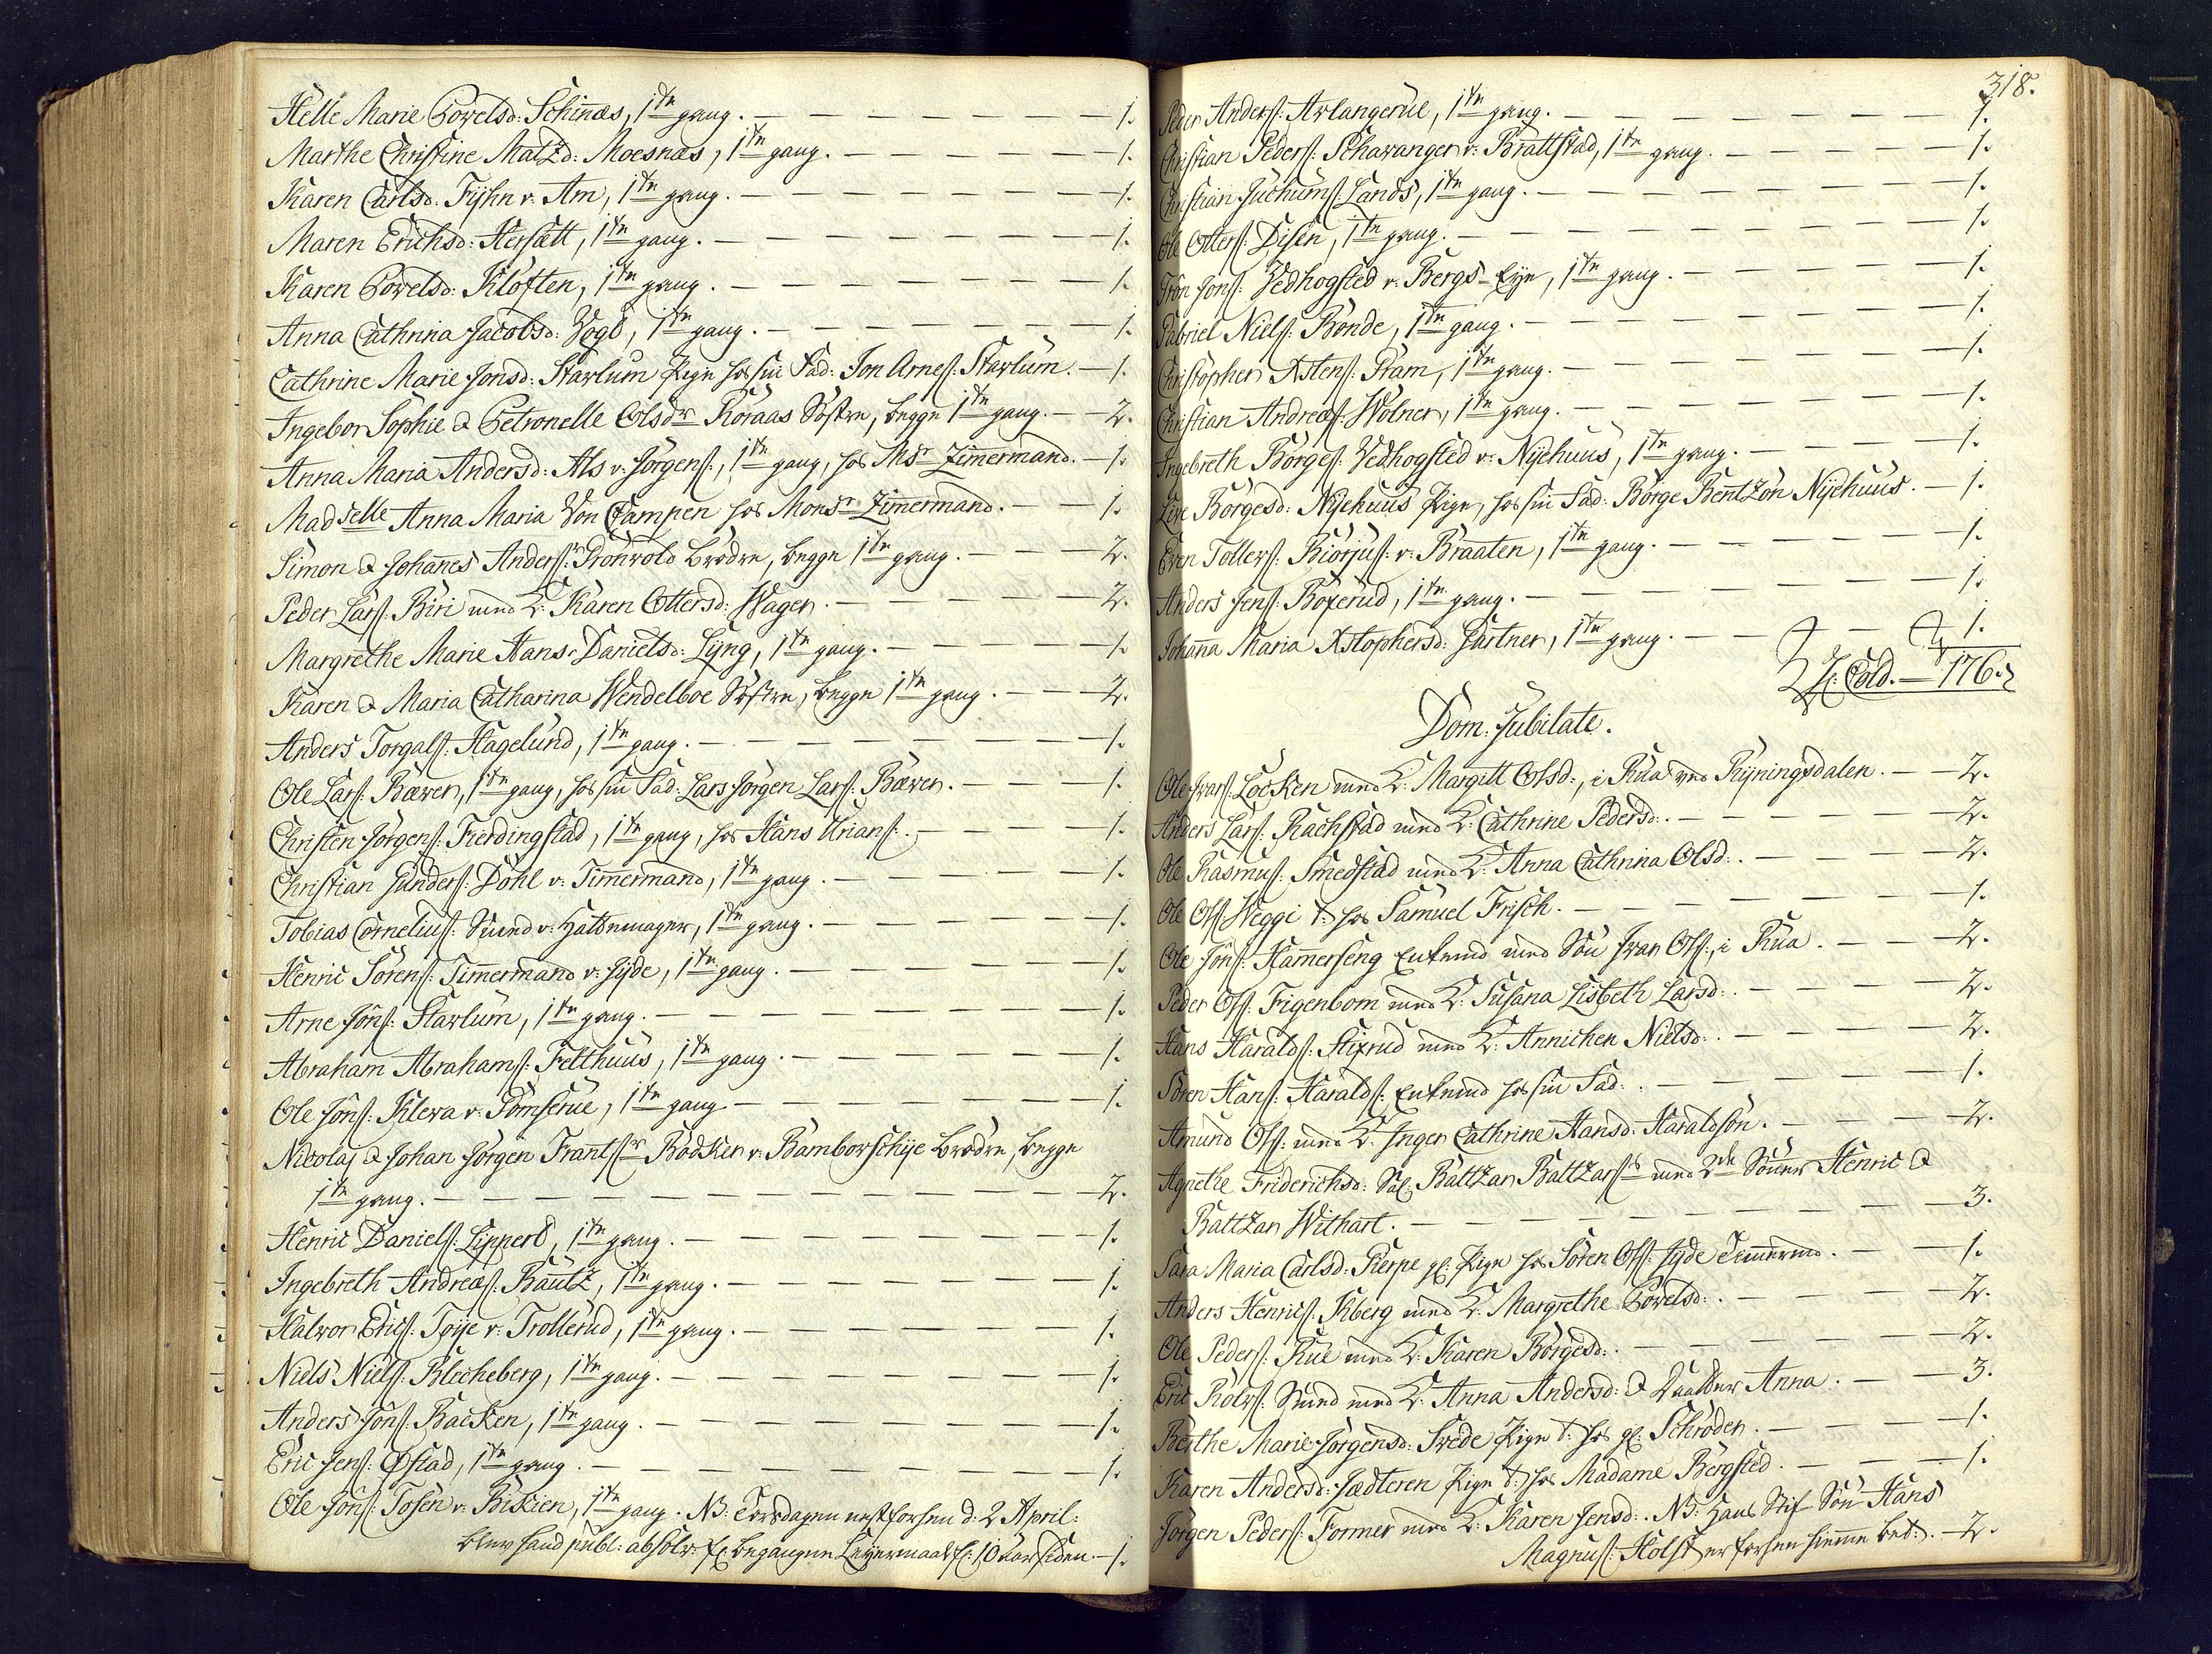 Helle Marie Povelsd: Schinæs, 1te gang. — 1.
Marthe Christine Matzd: Moesnæs, 1te gang. — 1.
Karen Carlsd. Fyhn v. Am, 1te gang. — 1.
Maren Erichsd: Hersætt, 1te gang. — 1.
Karen Povelsd: Kloften, 1te gang. — 1.
Anna Cathrina Jacobsd: Vogt, 1te gang. — 1.
Cathrine Marie Jonsd: Starlum Pige hos sin Fad: Jon Arnes: Starlum. — 1.
Ingebor Sophie & Petronelle Olsdr Roraas Søstre, begge 1te gang. — 2.
Anna Maria Andersd: Als v. Jørgens:, 1te gang, hos Msr Zimermand. — 1.
Madselle Anna Maria Von Campen hos Monsr Zimermand. — 1.
Simon & Johanes Anders: Grønvold brødre, begge 1te gang. — 2.
Peder Lars: Biri med K: Karen Ottersd: Wager. — 2.
Margrethe Marie Hans Danielsd: Lyng, 1te gang. — 1.
Karen & Maria Catharina Wendelboe Søstre, begge 1te gang. — 2.
Anders Torgals: Hagelund, 1te gang. — 1.
Ole Lars: Bæver, 1te gang, hos sin Fad: Lars Jørgen Lars: Bæver. — 1.
Christen Jørgens: Fierdingstad, 1te gang, hos Hans Urians: — 1.
Christian Gunders: Dohl v. Timmermand, 1te gang. — 1.
Tobias Cornelius: Smed v. Hattemager, 1te gang. — 1.
Henric Sørens: Timmermand v. Jyde, 1te gang. — 1.
Arne Jons: Starlum, 1te gang. — 1.
Abraham Abrahams: Felthuus, 1te gang. — 1.
Ole Jons: Kleva v. Gomserue, 1te gang — 1.
Nicolaj & Johan Jørgen Frantsr Bødker v. Bamborschije brødre, begge
1te gang. — 2.
Henric Daniels: Lippert, 1te gang. — 1.
Ingebreth Andreæs: Bautz, 1te gang. — 1.
Halvor Erics: Toije v. Trollerud, 1te gang. — 1.
Niels Niels: Blecheberg, 1te gang. — 1.
Anders Jons: Backen, 1te gang. — 1.
Eric Jens: Østad, 1te gang. — 1.
Ole Jons: Tosen v. Birkien, 1te gang. NB: Torsdagen nestforhen d: 2 April:
blev hand publ: absolv: f: begangne Leyermaal f: 10 aar siden. — 1.
318.
Peder Anders: Arlangerue, 1te gang. — 1.
Christian Peders: Schavanger v. Brattstad, 1te gang. — 1.
Christian Juchums: Lands, 1te gang. — 1.
Ole Otters: Disen, 1te gang. — 1.
Tron Jons: Vedhogsted v. Bergs-Eye, 1te gang. — 1.
Gabriel Niels: Bonde, 1te gang. — 1.
Christopher Astens: Gram, 1te gang. — 1.
Christian Andreæs: Wolner, 1te gang. — 1.
Ingebreth Børges: Vedhogsted v. Nyehuus, 1te gang. — 1.
Live Børgesd: Nyehuus Pige, hos sin Fad: Børge Bentzøn Nyehuus. — 1.
Even Tollers: Biorjus: v. Braaten, 1te gang. — 1.
Anders Jens: Boxerud, 1te gang. — 1.
Johana Maria Xstophersd: Gartner, 1te gang. — 1.
Cold. — 176.
Dom. Jubilate.
Ole Ivars: Løcken med K: Margitt Olsd:, i Rua ved Ryningsdalen. — 2.
Anders Lars: Rachstad med K: Cathrine Pedersd:. — 2.
Ole Rasmus: Smedstad med K: Anna Cathrina Olsd:. — 2.
Ole Ols: Weggi t: hos Samuel Frisch. — 1.
Ole Jons: Hamerseng Enkemd med Søn Ivar Ols:, i Rua. — 2.
Peder Ols: Figenbom med K: Susana Lisbeth Larsd:. — 2.
Hans Haralds: Stixrud med K: Annichen Nielsd:. — 2.
Søren Hans: Haralds: Enkemd hos sin Fad:. — 1.
Amund Ols: med K: Inger Cathrine Hansd: Haraldsøn. — 2.
Agnethe Friderichsd: Sal: Baltzar Baltzars: med 2de Sønner Henric &
Baltzar Withart. — 3.
Sara Maria Carlsd: Kierpe gl: Pige hos Søren Ols: Jyde Timmermd. — 1.
Anders Henrics: Kberg med K: Margrethe Povelsd:. — 2.
Ole Peders: Rue med K: Karen Børgesd:. — 2.
Eric Rolvs: Smed med K: Anna Andersd: & Daatter Anna. — 3.
Berthe Marie Jørgensd: Svede Pige t: hos gl: Schrøder. — 1.
Karen Andersd: Sædteren Pige t: hos Madame Bergsted. — 1.
Jørgen Peders: Former med K: Karen Jensd:. NB: hans Stif-Søn Hans
Magnus: Holst er forhen hieme bet:. — 2.